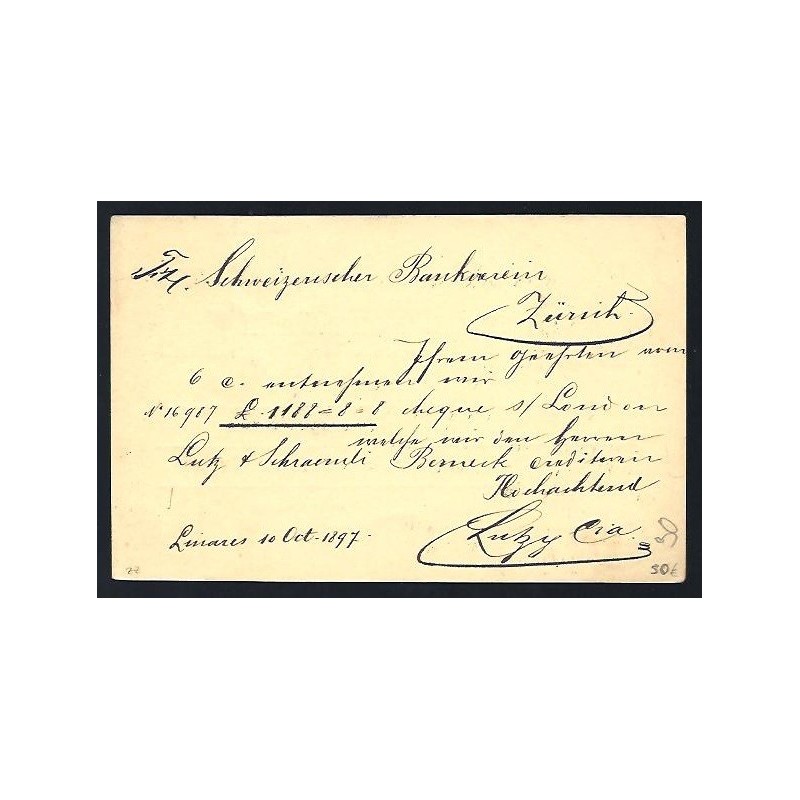 Tit. Schweizerischer Bankverein
Zürich.
Ihrem geehrten vom
6 c. entnehmen wir
No 16987 £ 1188=8=8 cheque s/ London
welche wir den Herren
Lutz & Schraemli Berneck creditiren
Hochachtend
Linares 10 Oct. 1897.
Lutz y Cia
30
22
30€